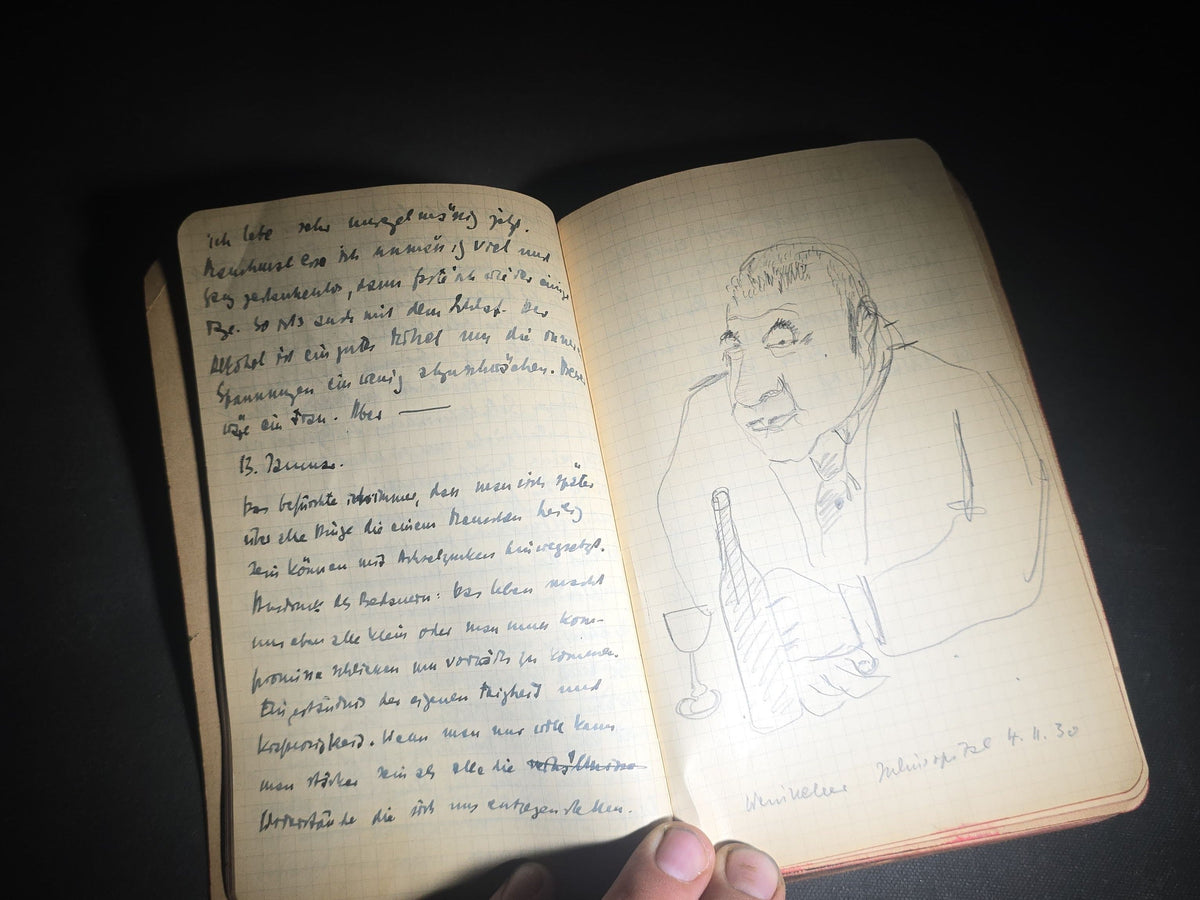 ich lebe sehr unregelmässig jetzt.
Manchmal esse ich unmässig viel und
ganz gedankenlos, dann faste ich wieder einige
Tage. So ists auch mit dem Schlaf. Der
Alkohol ist ein gutes Mittel um die inner.
Spannungen ein wenig abzuschwächen. Besser
wäre ein Frau. Aber —
13. Januar.
Das befürchte ich immer, dass man sich später
über alle Dinge die einem Menschen heilig
sein können mit Achselzucken hinwegsetzt.
Ausdruck des Bedauern: Das Leben macht
uns eben alle klein oder man muss Kom-
promisse schliessen um vorwärts zu kommen.
Eingeständnis der eigenen Feigheit und
. Wenn man nur will kann
man stärker sein als alle die Verhältnisse
Widerstände die sich uns entgegenstellen.
Weinkeller Juliusspital 4. II. 30